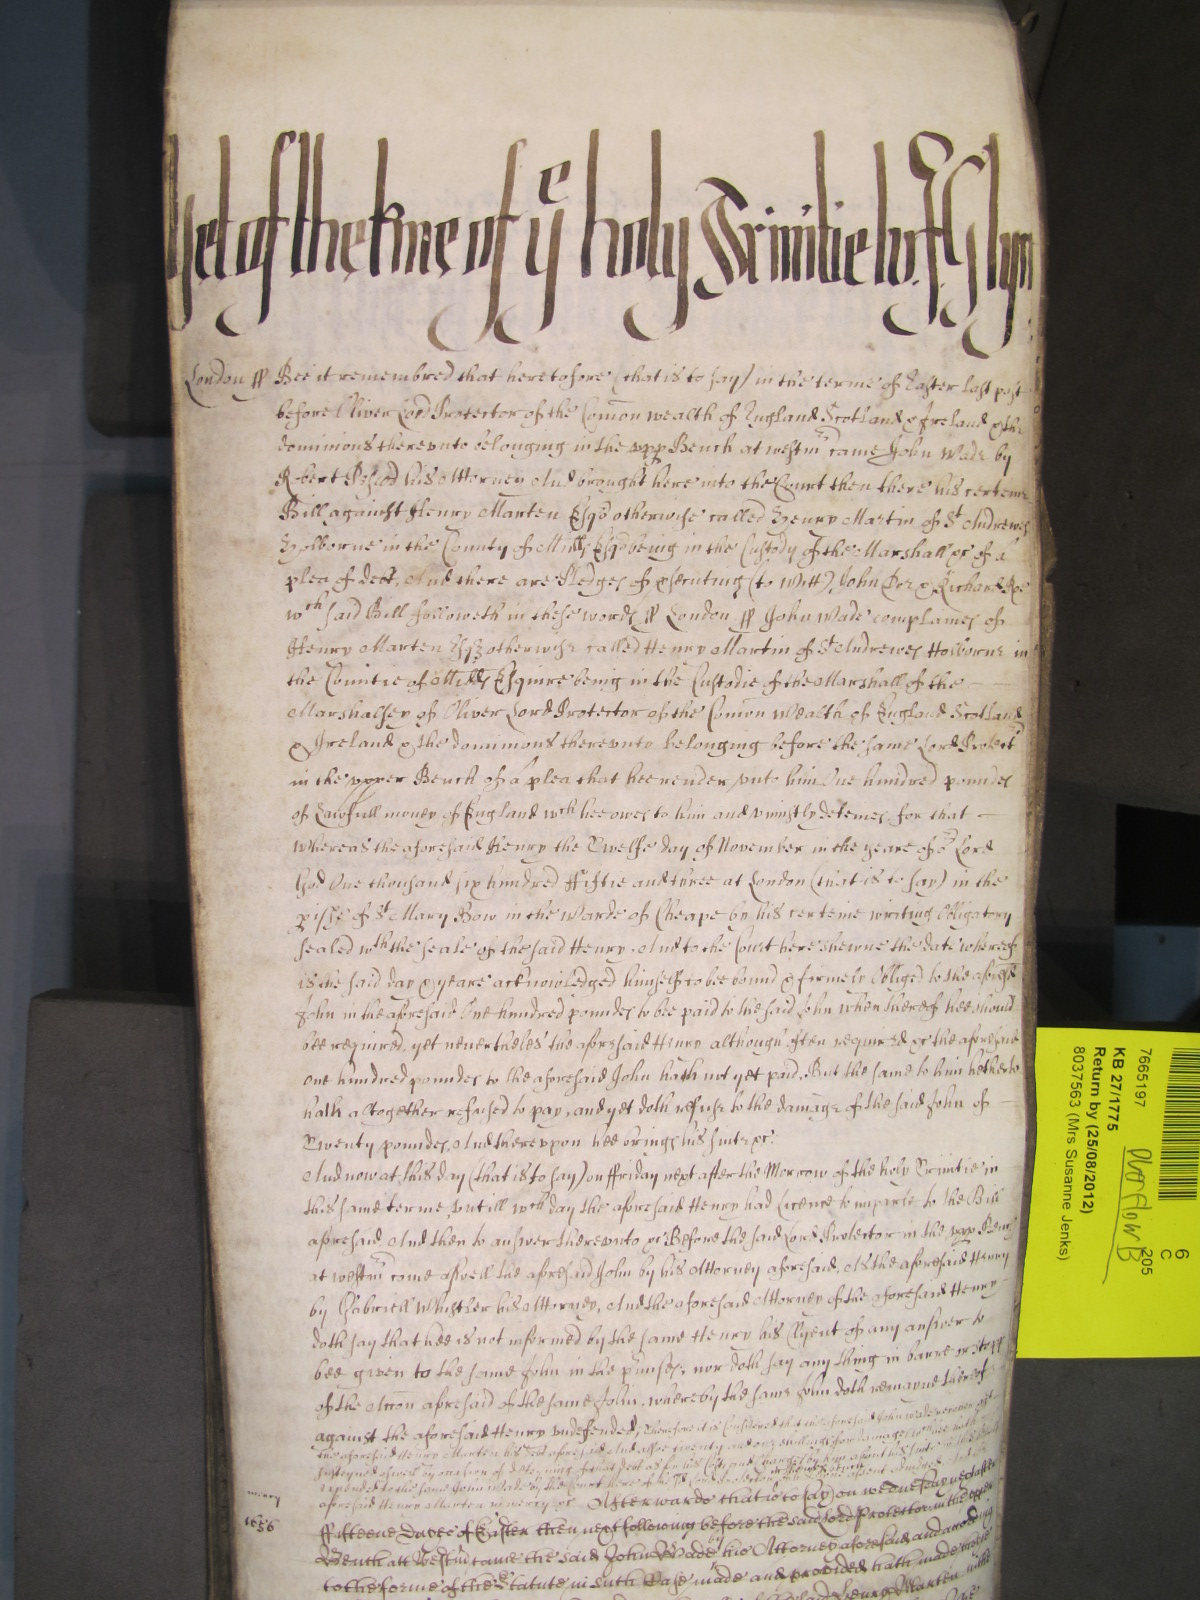 Yet of the terme of ye holy Trinitie
London ss Bee it remembred that heretofore (that is to say) in the terme of Easter last past
before Oliver Lord Protector of the Comon wealth of England Scotland & Ireland & the
dominions therevnto belonging in the vpp Bench at westmr came John Wade by
Robert his Attorney And brought here into the Court then there his certeine
Bill against Henry Marten Esqr otherwise called Henry Martin of St Andrewes
Holborne in the County of Midds Esqr being in the Custody of the Marshall &c of a
plea of debt, And there are Pledges of psecuting (to witt) John Doe & Richard Roe
wch said Bill followeth in these words ss London ss John Wade complaines of
Henry Marten Esqr otherwise called Henry Martin of St Andrewes Holborne in
the Countie of Midds Esquire being in the Custodie of the Marshall of the
Marshalsey of Oliver Lord Protector of the Comon Wealth of England Scotland
& Ireland & the dominions therevnto belonging before the same Lord Protectr
in the vpper Bench of a plea that hee render vnto him One hundred poundes
of Lawfull money of England wch hee owes to him and vniustly deteines for that
whereas the aforesaid Henry the Twelfe day of November in the yeare of or Lord
God One thousand six hundred ffiftie and three at London (that is to say) in the
pishe of St Mary Bow in the Warde of Cheape by his certeine writing Obligatory
sealed wth the seale of the said Henry And to the Court here shewne the date whereof
is the said day & yeare acknowledged himselfe to bee bound & firmely Obliged to the aforesd
John in the aforesaid One hundred poundes to bee paid to the said John when thereof hee should
bee required, yet neverthelesse the aforesaid Henry although often required &c the aforesaid
one hundred poundes to the aforesaid John hath not yet paid, But the same to him hetherto
hath altogether refused to pay, and yet doth refuse to the damage of the said John of
Twenty poundes, And therevpon hee brings his suite &c.
And now at this day (that is to say) on ffriday next after the Morrow of the holy Trinitie in
this same terme vntill wch day the aforesaid Henry had licence to imparle to the Bill
aforesaid And then to answer therevnto &c Before the said Lord Protector in the vpp Bench
at westmr came aswell the aforesaid John by his Attorney aforesaid, As the aforesaid Henry
by Gabriell Whistler his Attorney, And the aforesaid Attorney of the aforesaid Henry
doth say that hee is not informed by the same Henry his Clyent of any answer to
bee given to the same John in the pmises, nor doth say any thing in barre or stopp
of the Accon aforesaid of the same John, whereby the same John doth remayne thereof
against the aforesaid Henry vndefended, Therefore it is Considered that the aforesaid John Wade recover agt
the aforesaid Henry Marten his debt aforesaid And alsoe twenty and one shillings for damages which hee hath
susteyned aswell by occasion of deteyning of that debt as for his Costs and Charges by him about his suite in this behalf
expended to the same John Wade by the Court here of his assent adiudged And the
mercy aforesaid Henry Marten in mercy &c Afterwards that is to say on wednesday next after
1656 ffifteene dayes of Easter then next following before the said Lord Protector in the vpper
Bench att Westmr came the said John Wade by his Attorney aforesaid and according
to the forme of the Statute in such Case made and provided hath made
Henry Marten